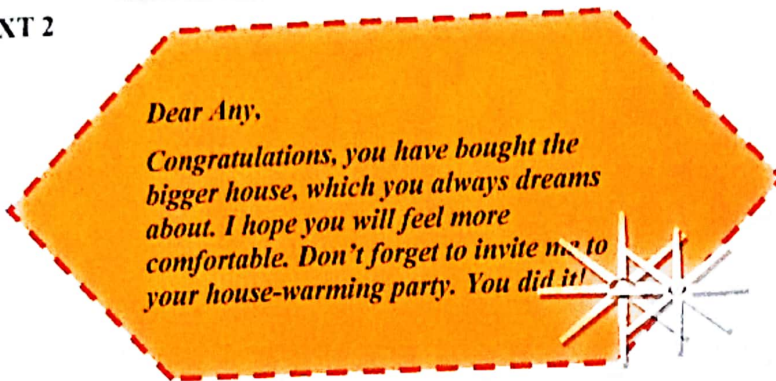 XT 2
Dear Any,
Congratulations, you have bought the
bigger house, which you always dreams
about. I hope you will feel more
comfortable. Don't forget to invite me to
your house-warming party. You did it!